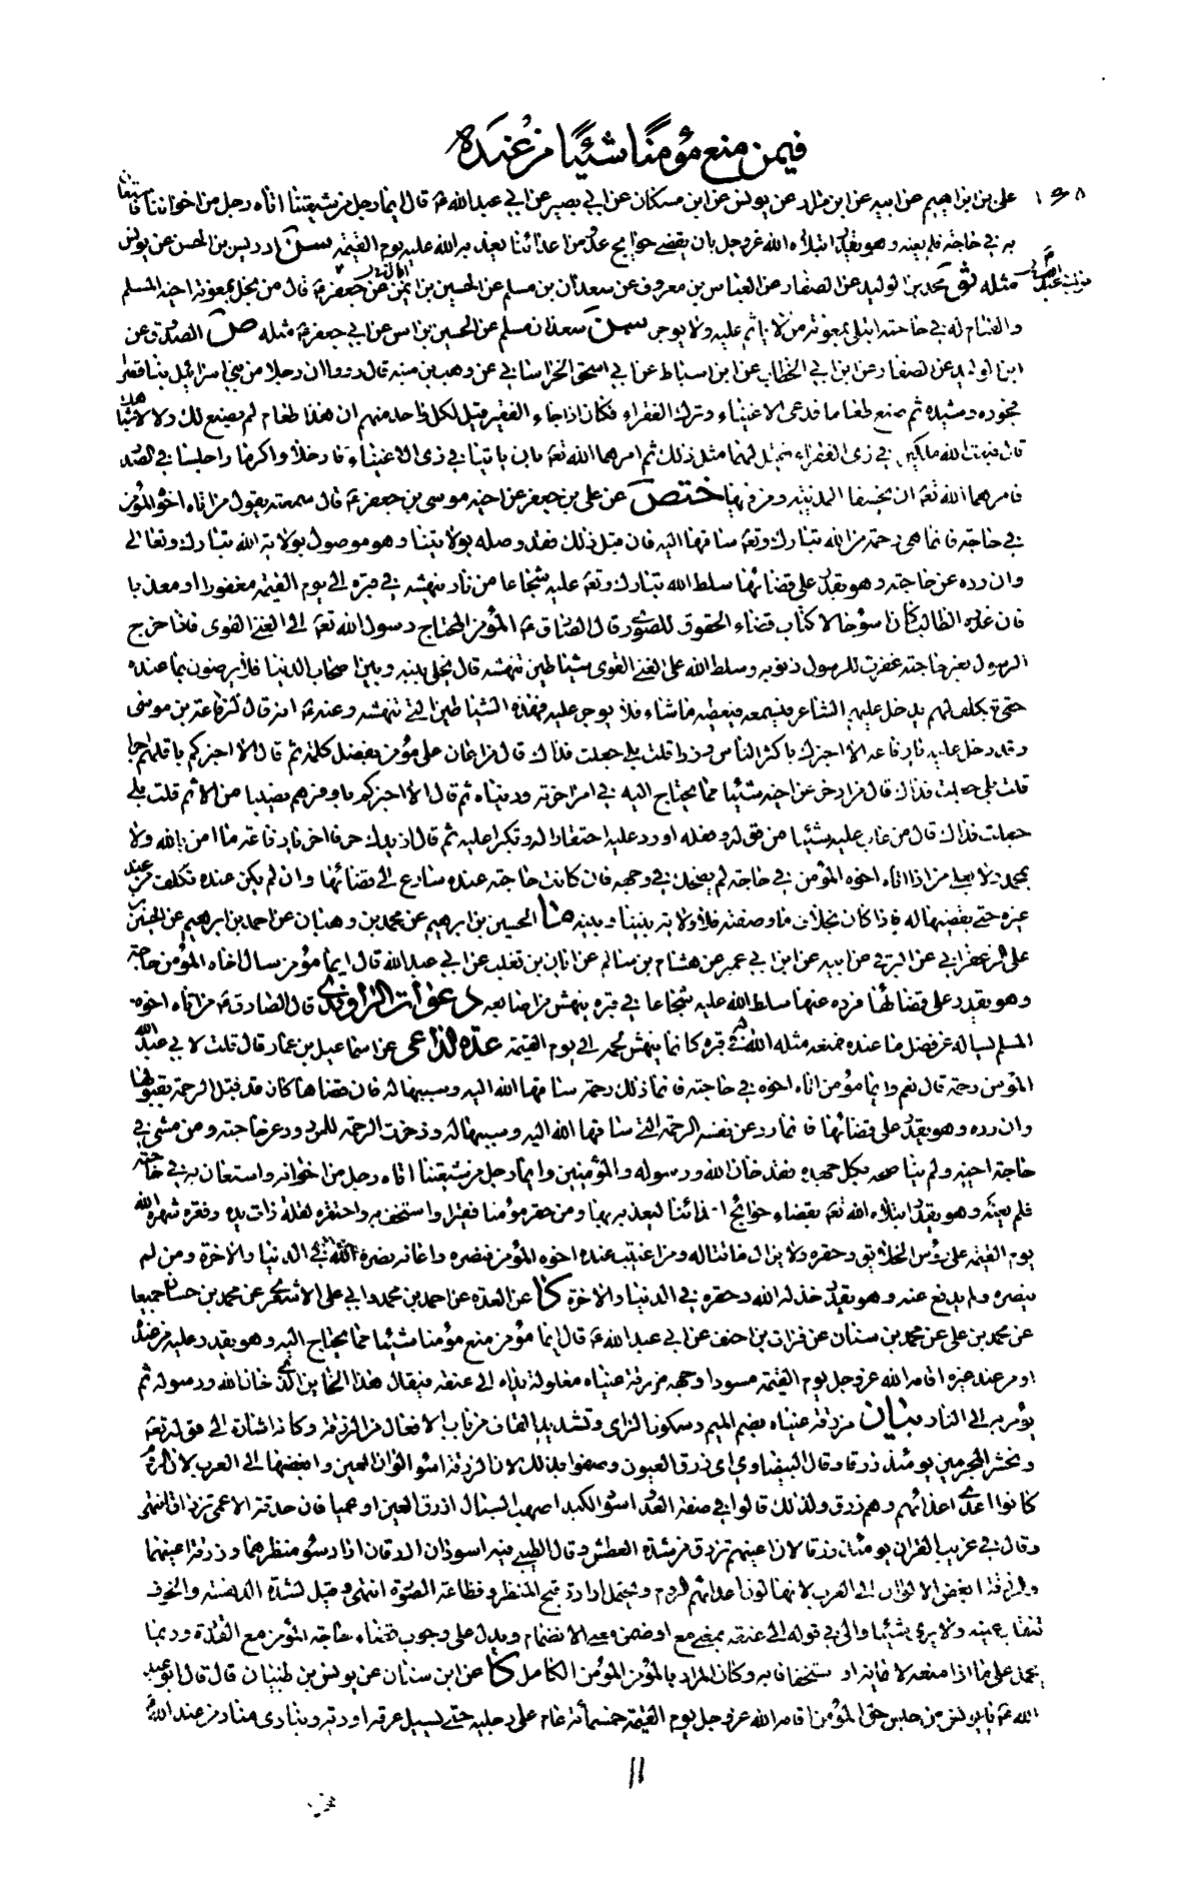 فيمن منع مؤمنا شيئا من عنده
١٣٨ علي بن ابراهيم عن ابيه عن ابن مرار عن يونس عن ابن مسكان عن ابي بصير عن ابي عبدالله ع قال ايما رجل من شيعتنا اتاه رجل من اخواننا فاستعان
به في حاجته فلم يعنه وهو يقدر ابتلاه الله عز وجل بان يقضي حوايج عدو من اعدائنا يعذبه الله عليه يوم القيمة سن ادريس بن الحسن عن يونس
مثله ثو محمد بن الوليد عن الصفار عن العباس بن معروف عن سعدان بن مسلم عن الحسين بن ابي عن ابي جعفر ع قال من بخل بمعونة اخيه المسلم
والقيام له في حاجته ابتلي بمعونة من لا ياثم عليه ولا يوجر سن سعدان بن مسلم عن الحسين بن انس عن ابي جعفر ع مثله ص الصدوق عن
ابن الوليد عن الصفار عن ابن ابي الخطاب عن ابن اسباط عن ابي اسحق الخراساني عن وهب بن منبه قال رووا ان رجلا من بني اسرائيل بنا قصرا
فجوده وشيده ثم صنع طعاما فدعى الاغنياء وترك الفقراء فكان اذا جاء الفقير قيل لكل واحد منهم ان هذا طعام لم يصنع لك ولا لاشباهك
قال فبعث الله ملكين في زي الفقراء فقيل لهما مثل ذلك ثم امرهما الله تع بان ياتيا في زي الاغنياء فادخلا واكرما واجلسا في الصدر
فامرهما الله تع ان يخسفا المدينة ومن فيها ختص عن علي بن جعفر عن اخيه موسى بن جعفر ع قال سمعته يقول من اتاه اخوه المؤمن
في حاجة فانما هي رحمة من الله تبارك وتع ساقها اليه فان قبل ذلك فقد وصله بولايتنا وهو موصول بولاية الله تبارك وتعالى
وان رده عن حاجته وهو يقدر على قضائها سلط الله تبارك وتع عليه شجاعا من نار ينهشه في قبره الى يوم القيمة مغفورا او معذبا
فان عذره الطالب كان اسوء حالا كتاب قضاء الحقوق للصوري قال الصادق ع المؤمن المحتاج رسول الله تع الى الغني القوي فاذا خرج
الرسول بغير حاجته غفرت للرسول ذنوبه وسلط الله على الغني القوي شياطين تنهشه قال يخلي بينه وبين اصحاب الدنيا فلا يرضون بما عنده
حتى يتكلف لهم يدخل عليهم الشاعر فيسمعه فيعطيه ما شاء فلا يوجر عليه فهذه الشياطين التي تنهشه وعنه ع انه قال لرفاعة بن موسى
وقد دخل عليه يا رفاعة الا اخبرك باكثر الناس وزرا قلت بلى جعلت فداك قال من اعان على مؤمن بفضل كلمة ثم قال الا اخبركم باقلهم اجرا
قلت بلى جعلت فداك قال من ادخر عن اخيه شيئا مما يحتاج اليه في امر اخرته ودنياه ثم قال الا اخبركم باوفرهم نصيبا من الاثم قلت بلى
جعلت فداك قال من عاب عليه شيئا من قوله وفعله او رد عليه احتقارا له وتكبرا عليه ثم قال ازيدك حرفا اخر يا رفاعة ما امن بالله ولا
بمحمد ولا بعلي من اذا اتاه اخوه المؤمن في حاجة لم يضحك في وجهه فان كانت حاجته عنده سارع الى قضائها وان لم يكن عنده تكلف من عند
غيره حتى يقضيها له فاذا كان بخلاف ما وصفته فلا ولاية بيننا وبينه ما الحسين بن ابرهيم عن محمد بن وهبان عن احمد بن ابرهيم عن الحسن بن
علي الزعفراني عن البرقي عن ابيه عن ابن ابي عمير عن هشام بن سالم عن ابان بن تغلب عن ابي عبدالله قال ايما مؤمن سال اخاه المؤمن حاجة
وهو يقدر على قضائها فرده عنها سلط الله عليه شجاعا في قبره ينهش من اصابعه دعوات الراوندي قال الصادق ع من اتاه اخوه
المسلم يساله عن فضل ما عنده فمنعه مثله الله في قبره كانما ينهش لحمه الى يوم القيمة عدة الداعي عن اسماعيل بن عمار قال قلت لابي عبدالله
المؤمن رحمة قال نعم وايما مؤمن اتاه اخوه في حاجته فانما ذلك رحمة ساقها الله اليه وسببها له فان قضاها كان قد قبل الرحمة بقبولها
وان رده وهو يقدر على قضائها فانما رد عن نفسه الرحمة التي ساقها الله اليه وسببها له وذخرت الرحمة للمردود عن حاجته ومن مشى في
حاجة اخيه ولم يناصحه بكل جهده فقد خان الله ورسوله والمؤمنين وايما رجل من شيعتنا اتاه رجل من اخوانه واستعان به في حاجته
فلم يعنه وهو يقدر ابتلاه الله تع بقضاء حوائج اعدائنا ليعذبه بها ومن حقر مؤمنا فقيرا واستخف به واحتقره لقلة ذات يده وفقره شهره الله
يوم القيمة على رؤس الخلايق وحقره ولا يزال ماقتا له ومن اغتيب عنده اخوه المؤمن فنصره واعانه نصره الله في الدنيا والاخرة ومن لم
ينصره ولم يدفع عنه وهو يقدر خذله الله وحقره في الدنيا والاخرة كا عن العدة عن احمد بن محمد وابي علي الاشعري عن محمد بن حسان جميعا
عن محمد بن علي عن محمد بن سنان عن فرات بن احنف عن ابي عبدالله ع قال ايما مؤمن منع مؤمنا شيئا مما يحتاج اليه وهو يقدر عليه من عنده
او من عند غيره اقامه الله عز وجل يوم القيمة مسودا وجهه مزرقة عيناه مغلولة يداه الى عنقه فيقال هذا الخاين الذي خان الله ورسوله ثم
يؤمر به الى النار بيان مزرقة عيناه بضم الميم وسكون الزاي وتشديد القاف من باب الافعلال من الزرقة وكانه اشارة الى قوله تع
ونحشر المجرمين يومئذ زرقا وقال البيضاوي اي زرق العيون وصفوا بذلك لان الزرقة اسوء الوان العين وابغضها الى العرب لان الروم
كانوا اعدى اعدائهم وهم زرق ولذلك قالوا في صفة العدو اسود الكبد اصهب السبال ازرق العين او عميا فان حدقة الاعمى تزراق انتهى
وقال في غريب القران يومئذ زرقا لان اعينهم تزرق من شدة العطش وقال الطيبي فيه اسودان ازرقان اراد سوء منظرهما وزرقة اعينهما
والزرقة ابغض الالوان الى العرب لانها لون اعدائهم الروم ويحتمل ارادة قبح المنظر وفظاعة الصورة انتهى وقيل لشدة الدهشة والخوف
تنقلب عينه ولا يرى شيئا والى في قوله الى عنقه بمعنى مع او ضمن معنى الانضمام ويدل على وجوب قضاء حاجة المؤمن مع القدرة وربما
يحمل على ما اذا منعه لايمانه او استخفافا به وكان المراد بالمؤمن المؤمن الكامل كا عن ابن سنان عن يونس بن ظبيان قال قال ابو عبد
الله ع يا يونس من حبس حق المؤمن اقامه الله عز وجل يوم القيمة خمسمائة عام على رجليه حتى يسيل عرقه او دمه وينادي مناد من عند الله
١١